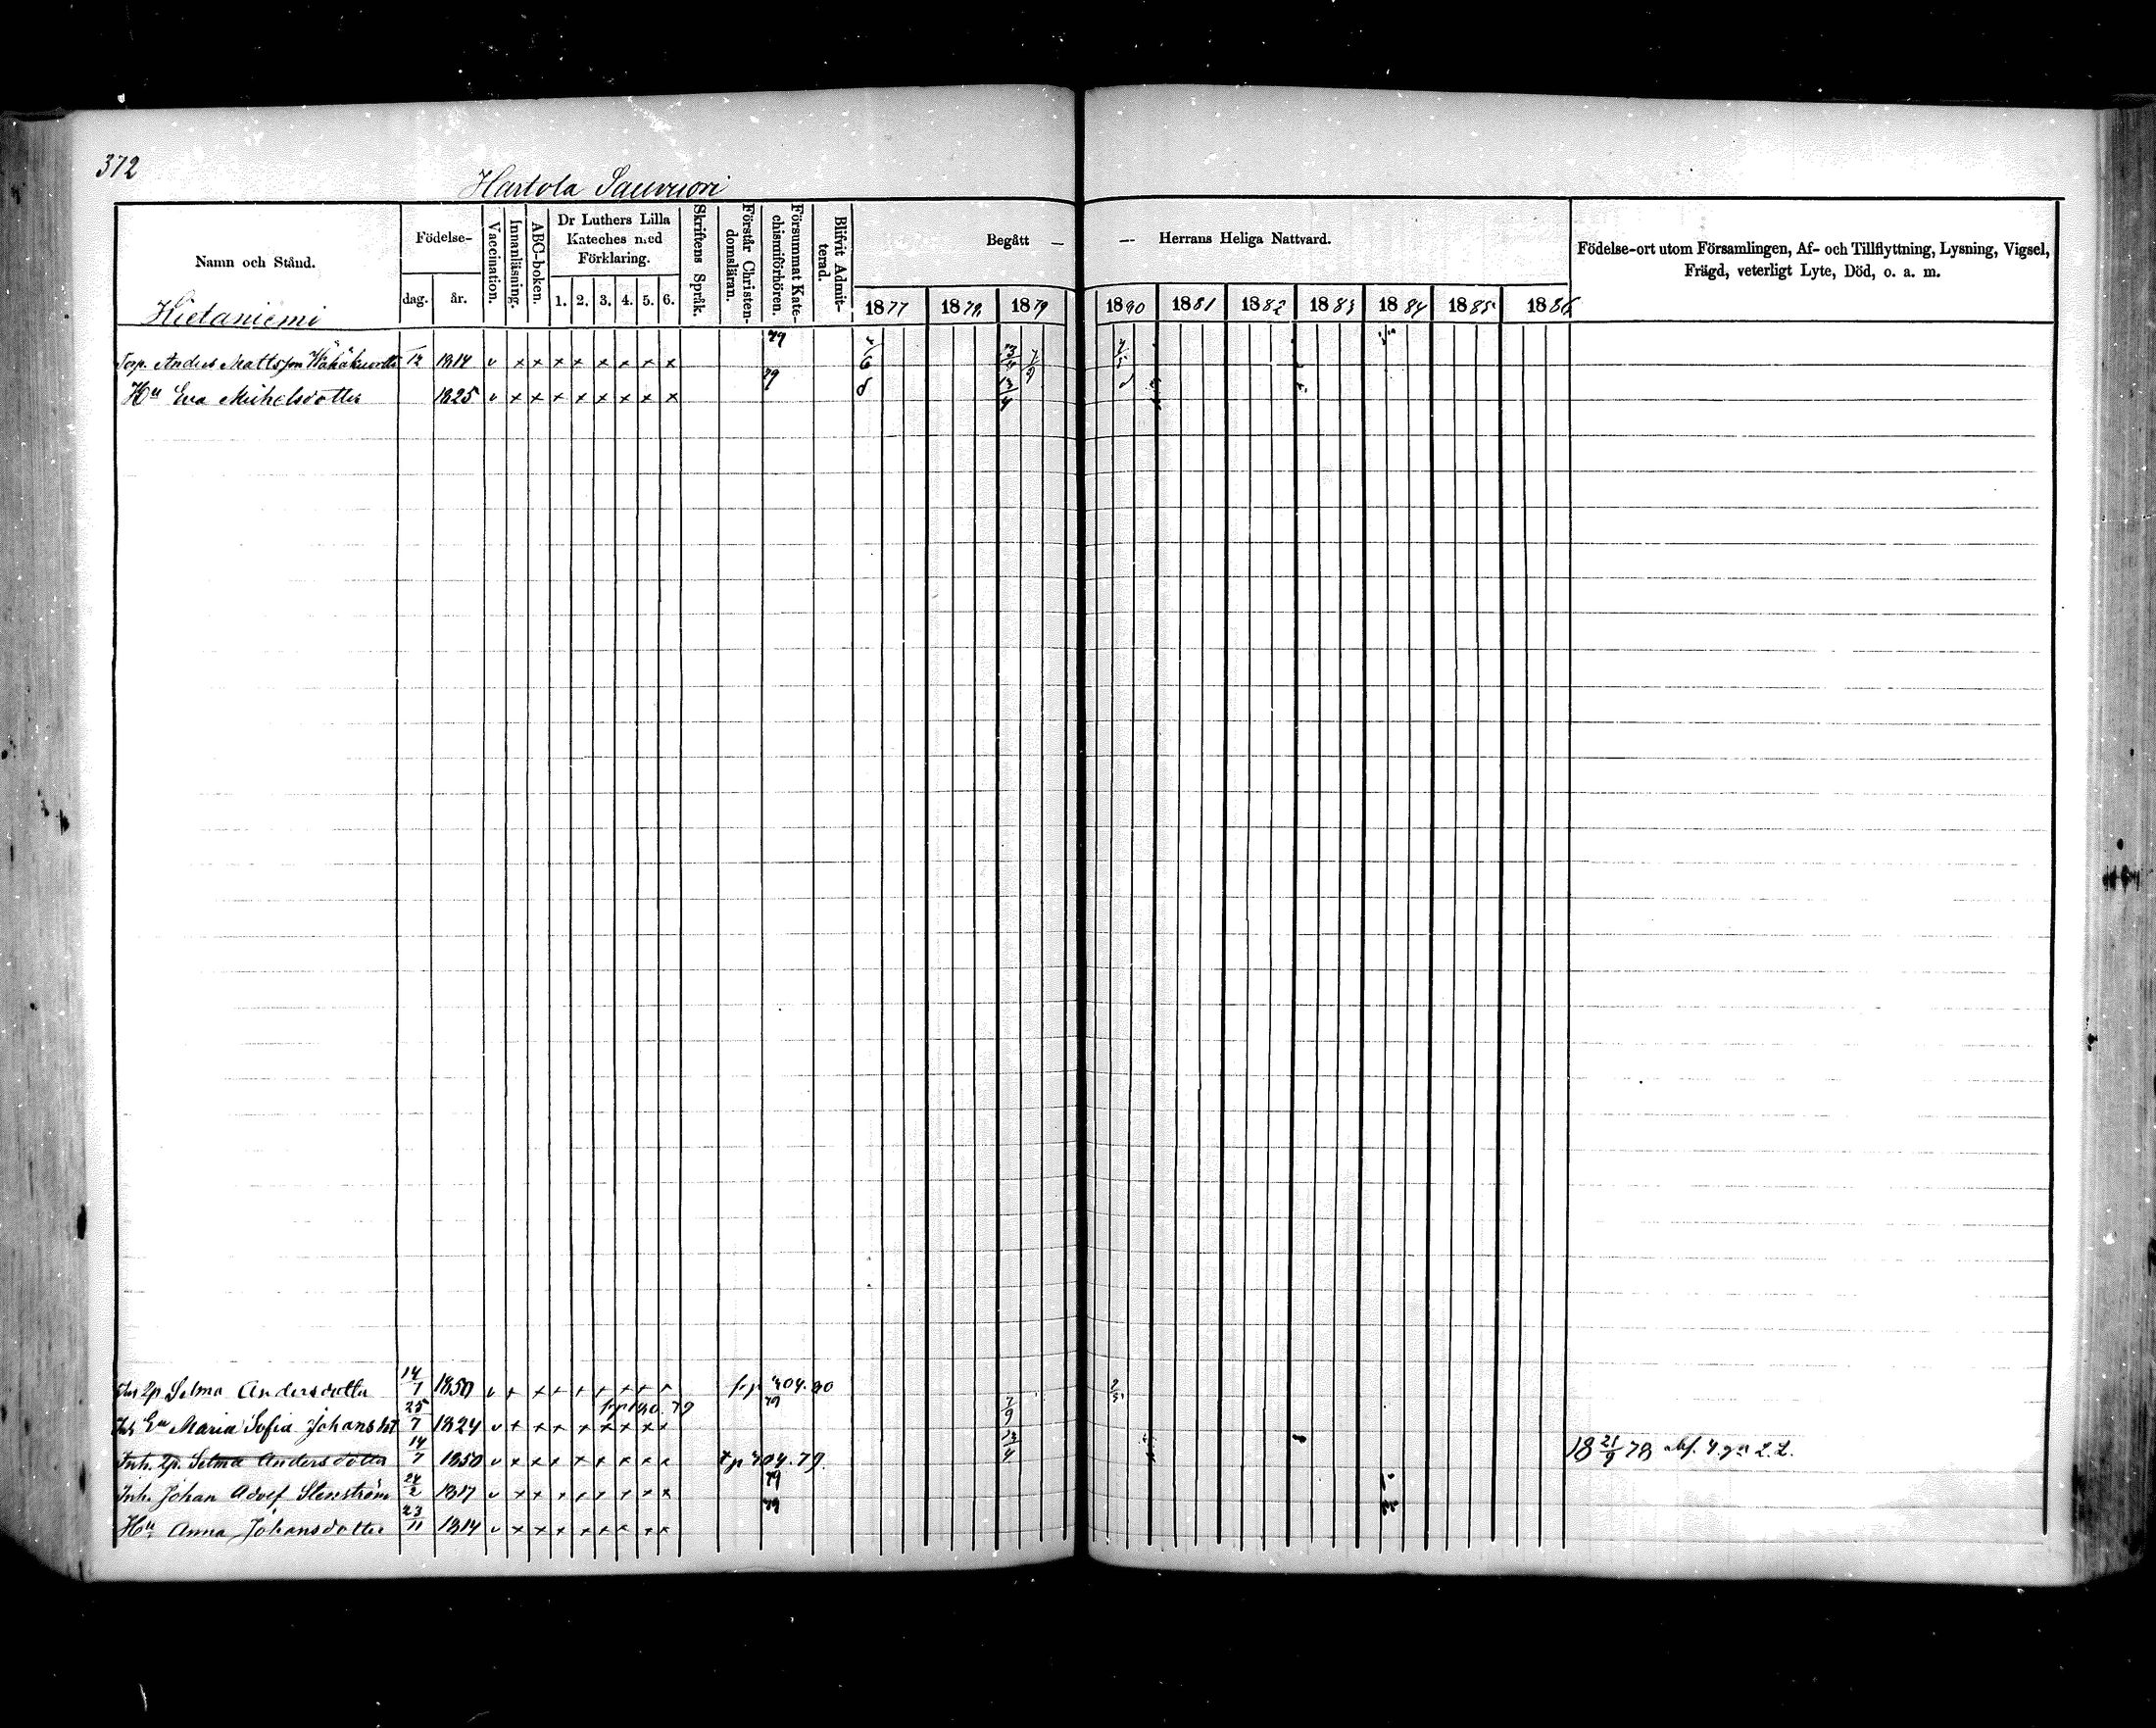 372
Hartola Sauvuori
Namn och Stånd.
Födelse-
dag.
år.
Vaccination.
Innanläsning.
ABC-boken.
Dr Luthers Lilla
Kateches med
Förklaring.
1. 2. 3. 4. 5. 6.
Skriftens Språk.
Förstår Christen-
domsläran.
Försummat Kate-
chismiförhören.
Blifvit Admit-
terad.
Begått —
— Herrans Heliga Nattvard.
1877 1878 1879 1880 1881 1882 1883 1884 1885 1886
Födelse-ort utom Församlingen, Af- och Tillflyttning, Lysning, Vigsel,
Frägd, veterligt Lyte, Död, o. a. m.
Hietaniemi
79
Torp. Anders Mattsson 1814 v x x x x x x x x
79
Hu Eva Michelsdotter 1825 v x x x x x x x x
2p Selma Andersdotter 14/7 1850 v x x x x x x x x
79
Maria Sofia Johansdot 25/7 1824 v x x x x x x x x 7/9
Inh. 2p. Selma Andersdotter 14/7 1850 v x x x x x x x x 13/4 18 21/9 78
79
Inh. Johan Adolf Stenström 24/2 1817 v x x x x x x x x
79
Hu Anna Johansdotter 23/11 1814 v x x x x x x x x